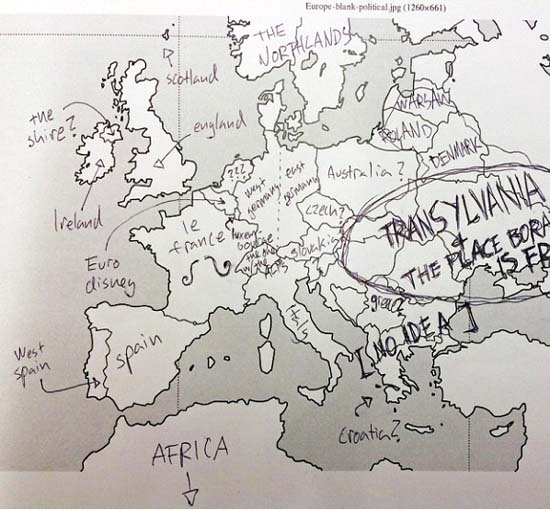 Europe-blank-political.jpg (1260x661)
THE
NORTHLANDS
scotland
the
shire?
england
WARSAW
POLAND
DENMARK
Australia?
???
west
germany
east
germany
TRANSYLVANIA
&
THE PLACE BORA
IS FR
Ireland
Euro
disney
le
france
czech?
slovakia
luxem
bourge
the other
ALPS
greec?
[NO IDEA]
West
spain
spain
Croatia?
AFRICA